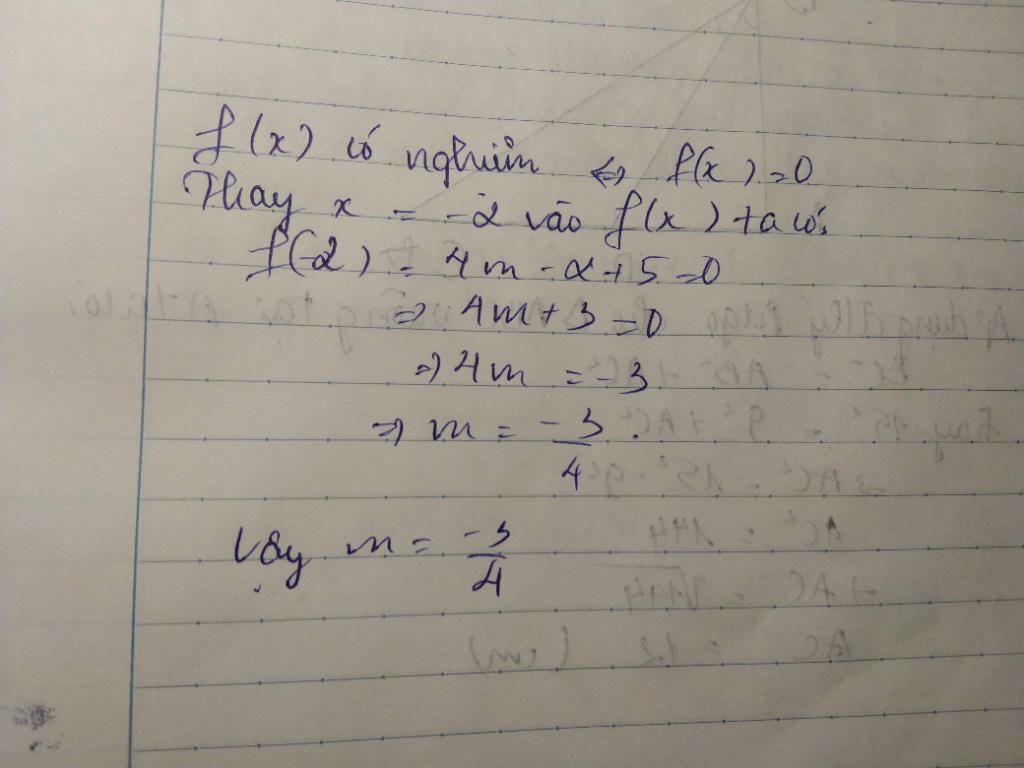 f(x) có nghiệm <=> f(x)=0
Thay x = -2 vào f(x) ta có:
f(-2) = 4m - 2 + 5 = 0
=> 4m + 3 = 0
=> 4m = -3
=> m = -3/4.
Vậy m = -3/4